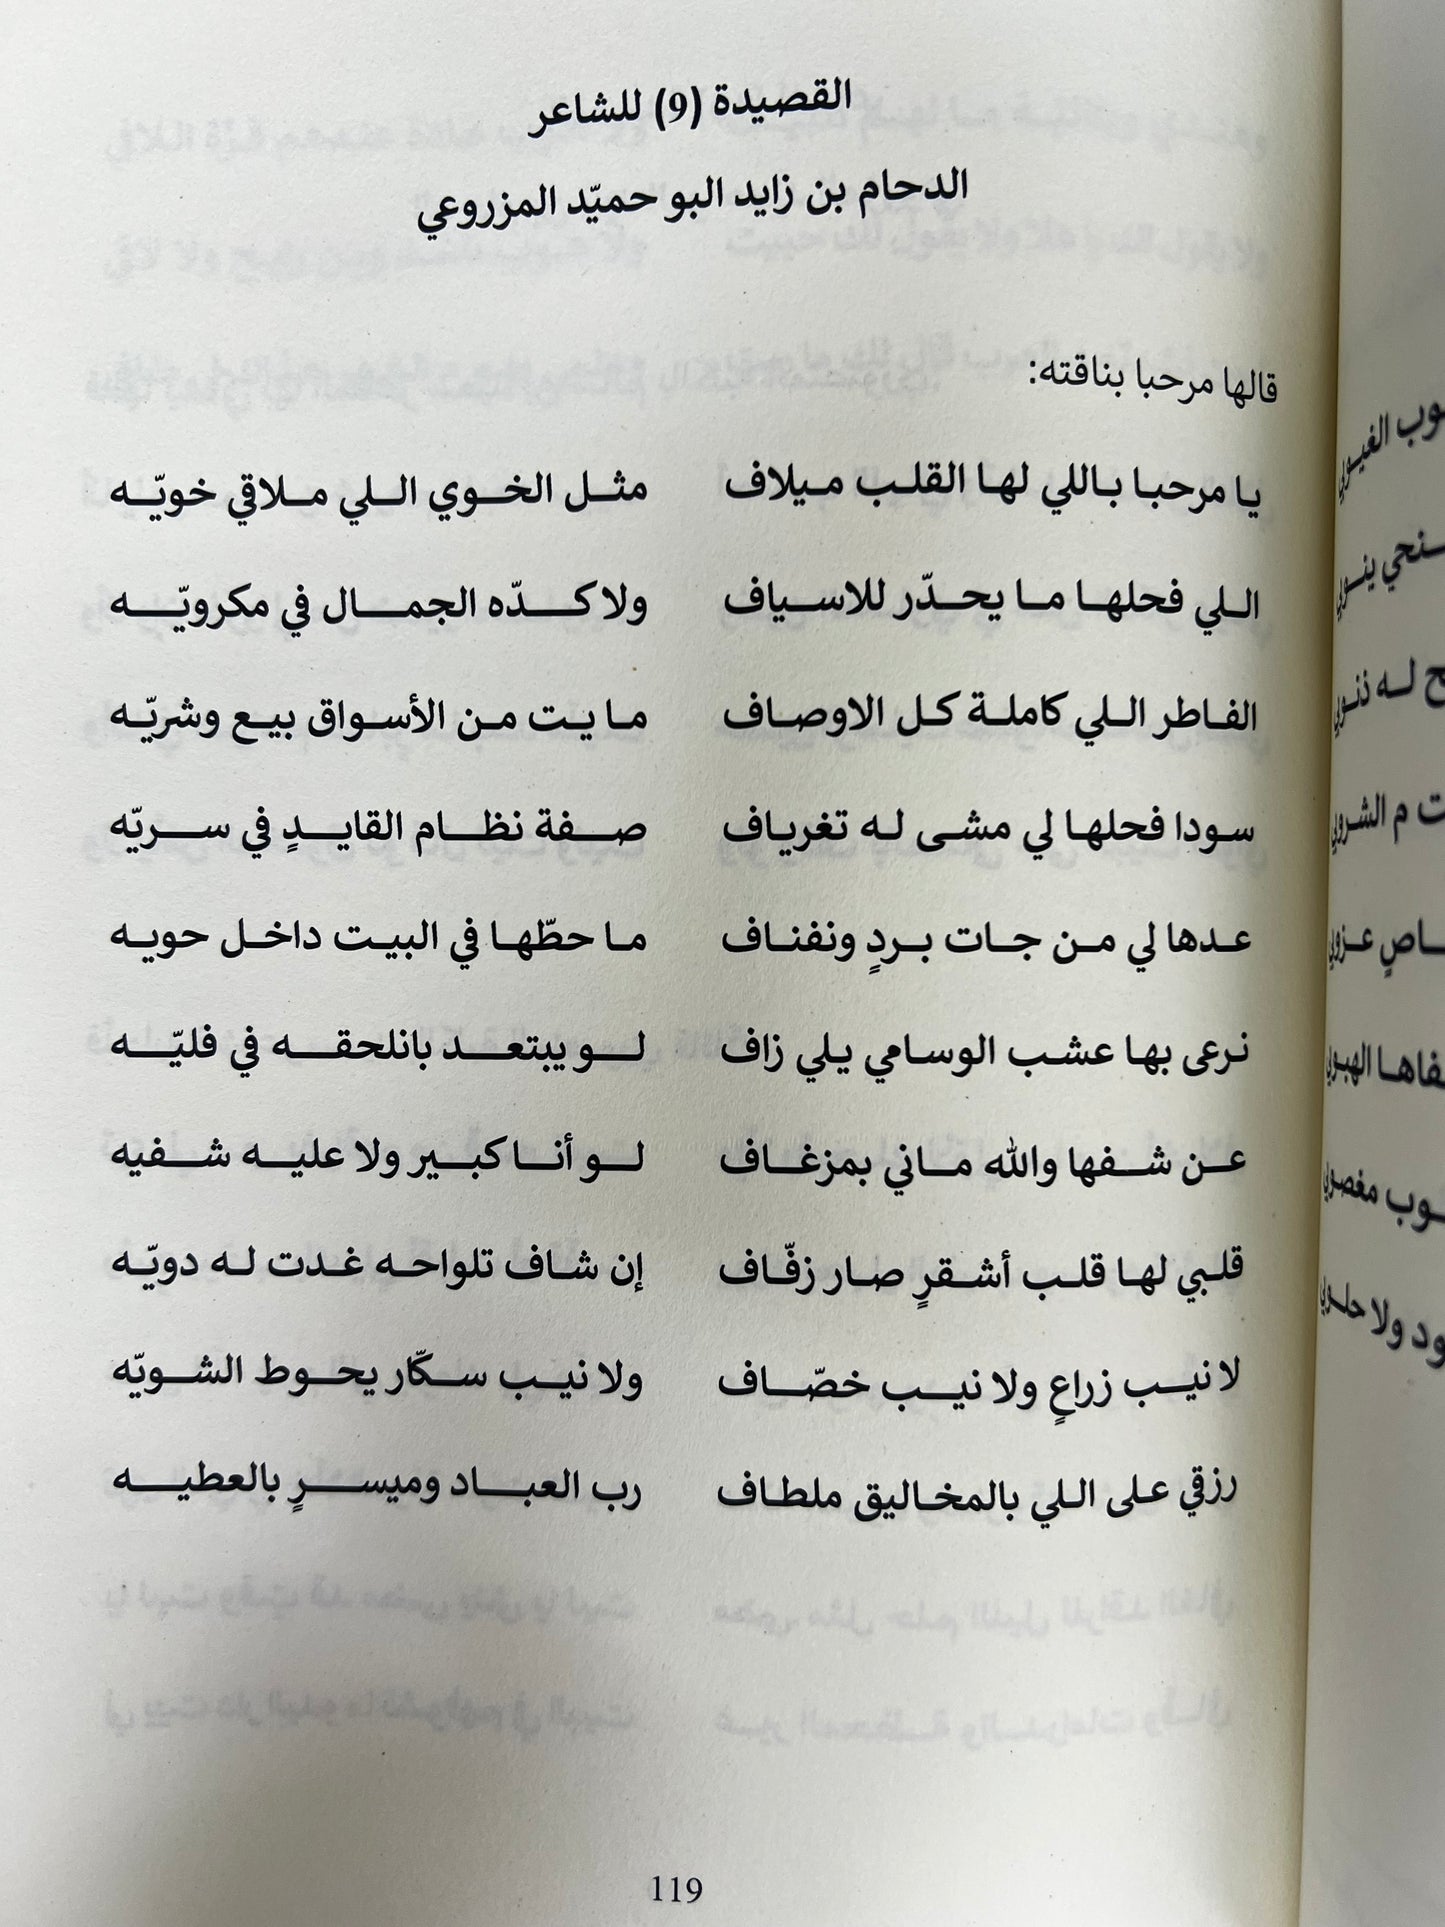 القصيدة (9) للشاعر
الدحام بن زايد البو حميّد المزروعي
قالها مرحبا بناقته:
يا مرحبا باللي لها القلب ميلاف مثل الخوي اللي ملاقي خويّه
اللي فحلها ما يحدّر للاسياف ولا كدّه الجمال في مكرويّه
الفاطر اللي كاملة كل الاوصاف ما يت من الأسواق بيع وشريّه
سودا فحلها لي مشى له تغرياف صفة نظام القايدٍ في سريّه
عدها لي من جات بردٍ ونفناف ما حطّها في البيت داخل حويه
نرعى بها عشب الوسامي يلي زاف لو يبتعد بانلحقه في فليّه
عن شفها والله ماني بمزغاف لو أنا كبير ولا عليه شفيه
قلبي لها قلب أشقرٍ صار زفّاف إن شاف تلواحه غدت له دويّه
لا نيب زراعٍ ولا نيب خصّاف ولا نيب سكّار يحوط الشويّه
رزقي على اللي بالمخاليق ملطاف رب العباد وميسرٍ بالعطيه
119